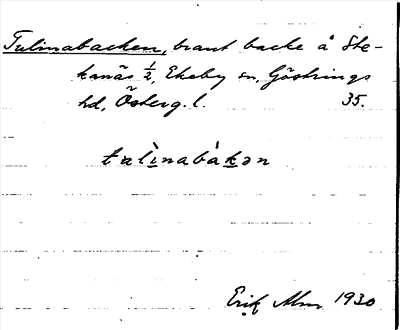 Tulinabacken, brant backe å Ste-
kanäs ½, Ekeby sn, Göstrings
hd, Österg. l. 35.
tulìnabàkən
Erik Alm 1930